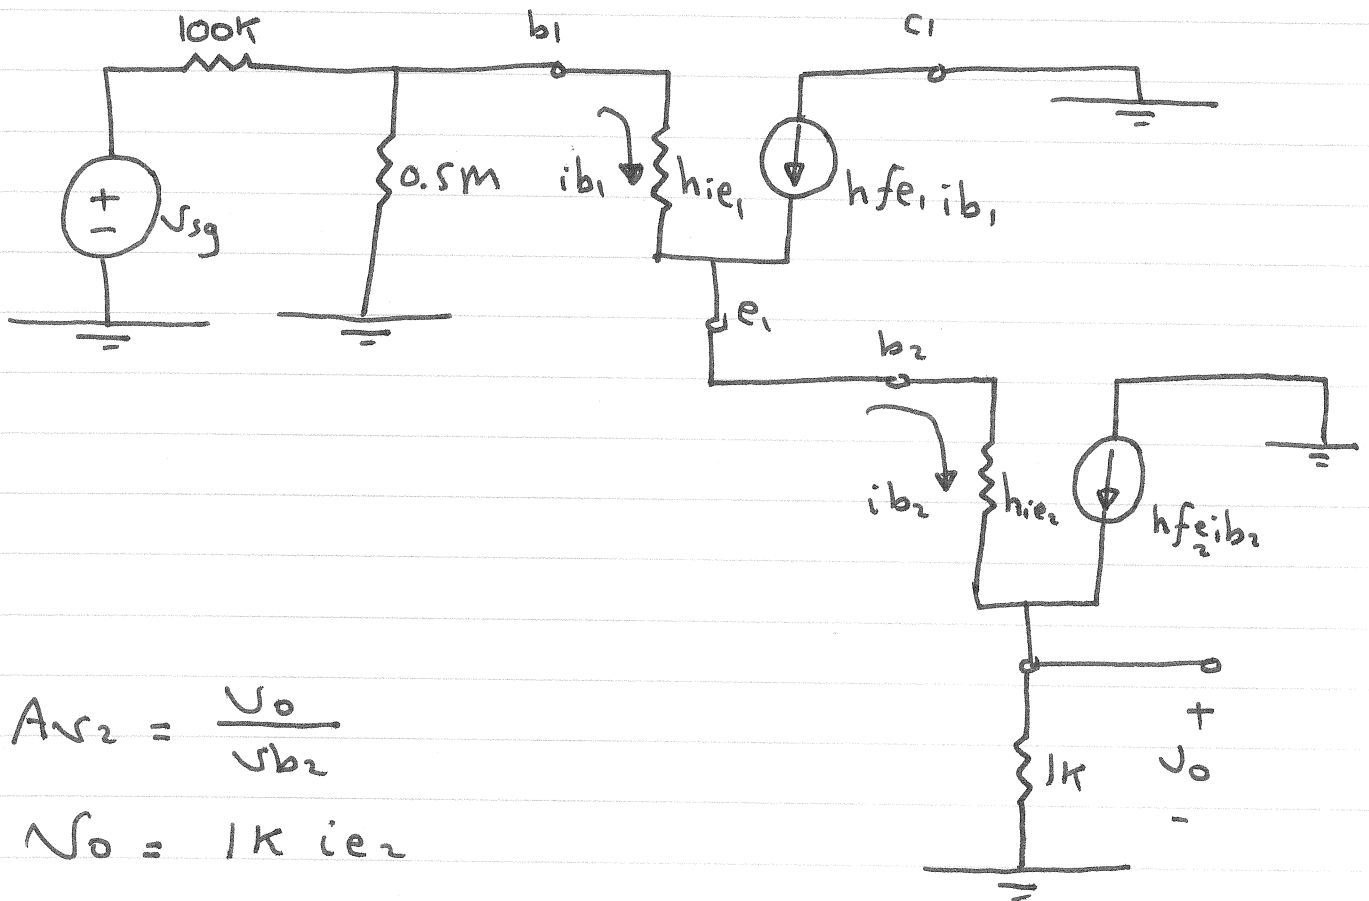 100K
b1
c1
+
-
Vsg
0.5M
ib1
hie1
hfe1 ib1
e1
b2
ib2
hie2
hfe2 ib2
Av2 = Vo / Vb2
Vo = 1K ie2
1K
+
Vo
-